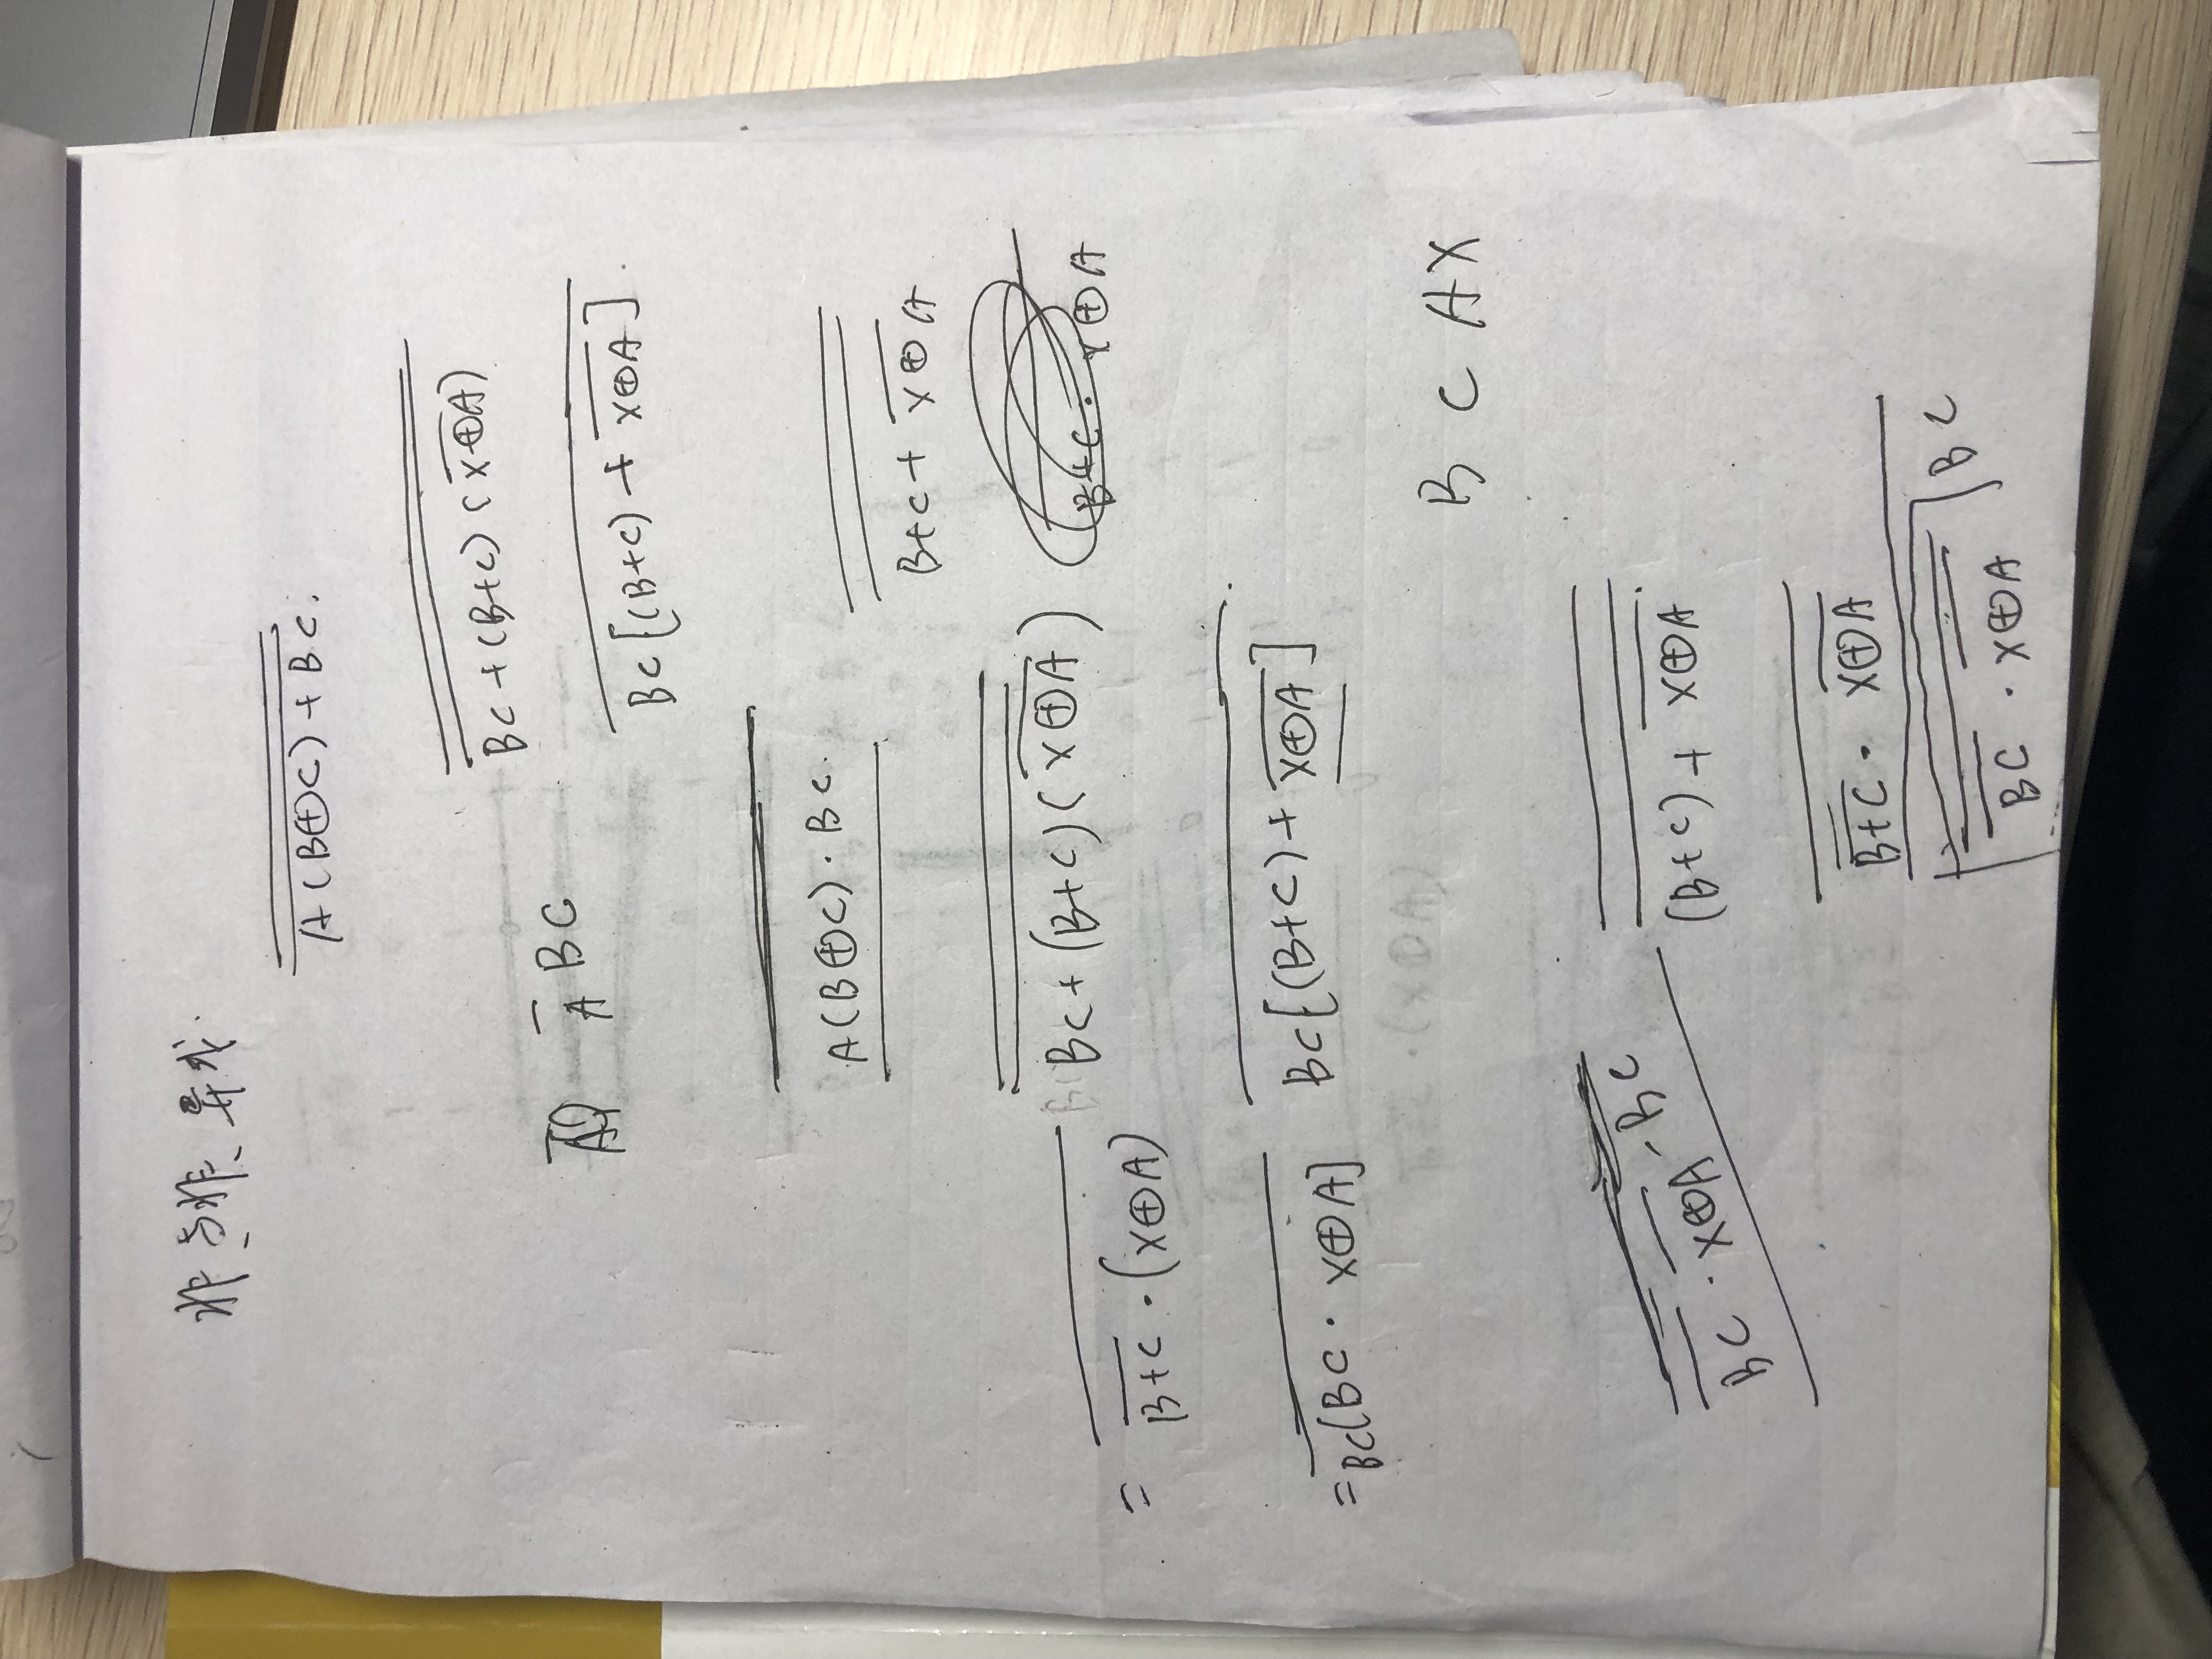 非 与非 异或.
A(B⊕C)+BC.
BC+(B+C)(X⊕A)
A BC
BC[(B+C)+X⊕A].
A(B⊕C)·BC.
B+C+X⊕A
BC+(B+C)(X⊕A)
B+C·X⊕A
=B+C·(X⊕A)
=BC[BC·X⊕A]
BC[(B+C)+X⊕A]
B C A X
BC·X⊕A·BC
(B+C)+X⊕A
B+C·X⊕A
BC·X⊕A]BC